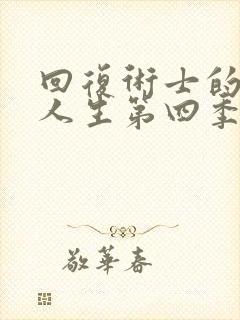 回復術士的
人生第四季
敬華春